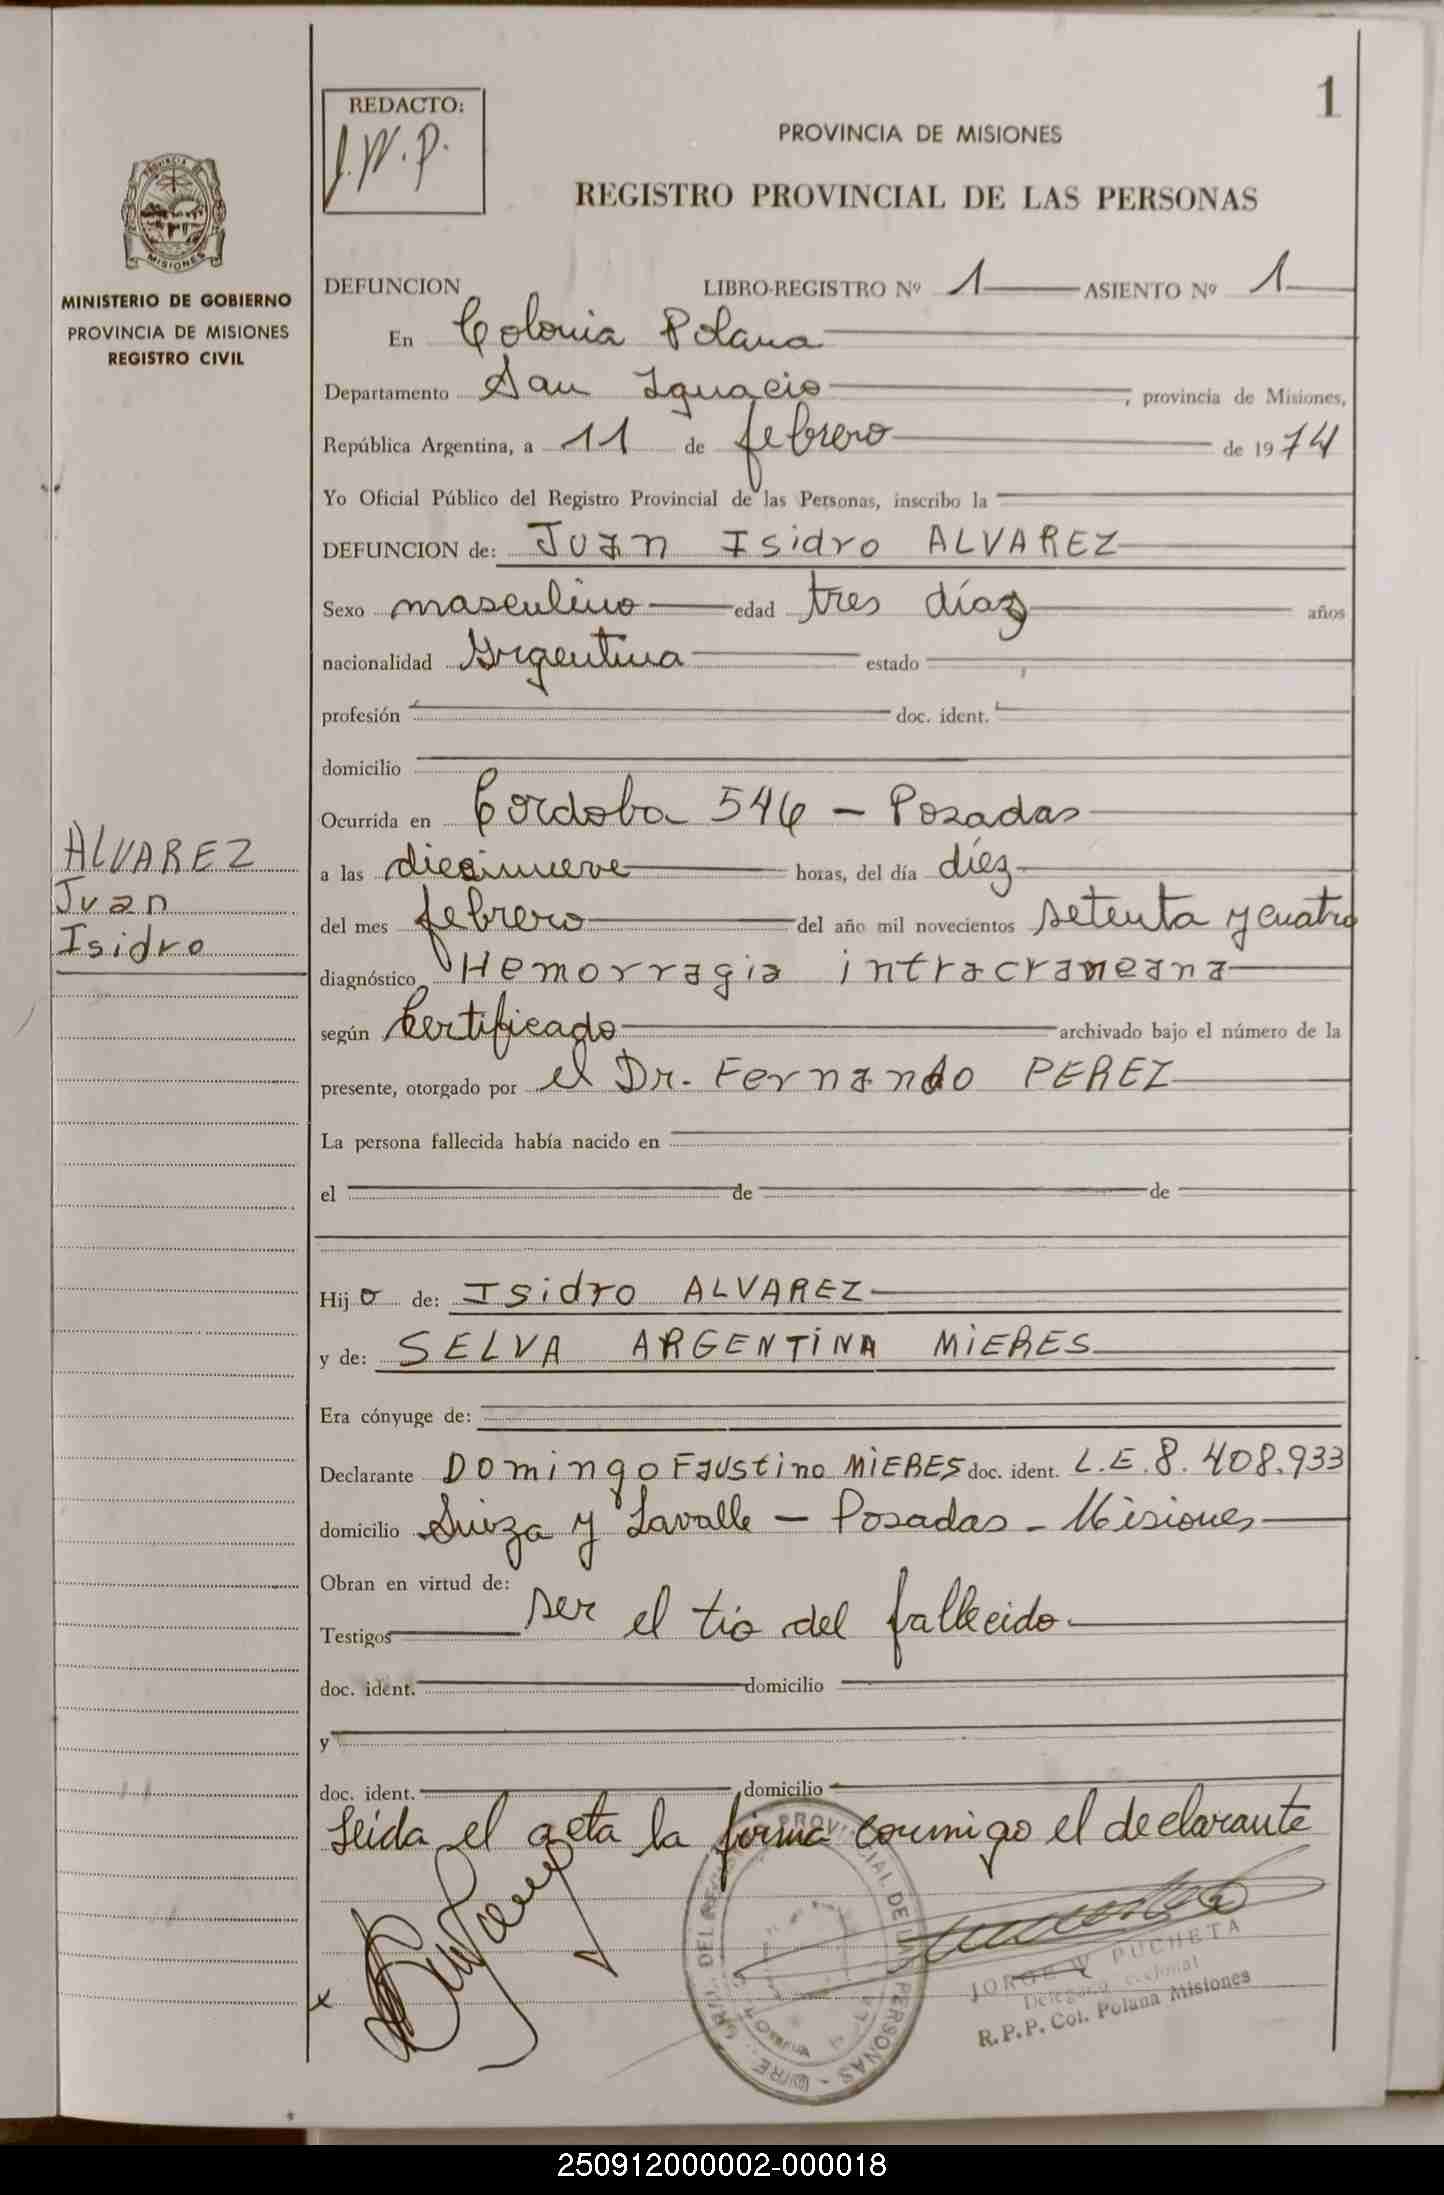 1
REDACTO:
J.W.P.
PROVINCIA DE MISIONES
REGISTRO PROVINCIAL DE LAS PERSONAS
MISIONES
MINISTERIO DE GOBIERNO
PROVINCIA DE MISIONES
REGISTRO CIVIL
DEFUNCION LIBRO-REGISTRO Nº 1 ASIENTO Nº 1
En Colonia Polana
Departamento San Ignacio, provincia de Misiones,
República Argentina, a 11 de febrero de 1974
Yo Oficial Público del Registro Provincial de las Personas, inscribo la
DEFUNCION de: Juan Isidro ALVAREZ
Sexo masculino edad tres días años
nacionalidad Argentina estado
profesión doc. ident.
domicilio
Ocurrida en Cordoba 546 - Posadas
a las diecinueve horas, del día díez
del mes febrero del año mil novecientos setenta y cuatro
diagnóstico Hemorragia intracraneana
según Certificado archivado bajo el número de la
presente, otorgado por el Dr. Fernando PEREZ
La persona fallecida había nacido en
el de de
Hijo de: Isidro ALVAREZ
y de: SELVA ARGENTINA MIERES
Era cónyuge de:
Declarante Domingo Faustino MIERES doc. ident. L.E. 8.408.933
domicilio Suiza y Lavalle - Posadas - Misiones
Obran en virtud de:
ser el tio del fallecido
Testigos
doc. ident. domicilio
y
doc. ident. domicilio
Leida el acta la firma conmigo el declarante
ALVAREZ
Juan
Isidro
JORGE W PUCHETA
R.P.P. Col. Polana Misiones
250912000002-000018